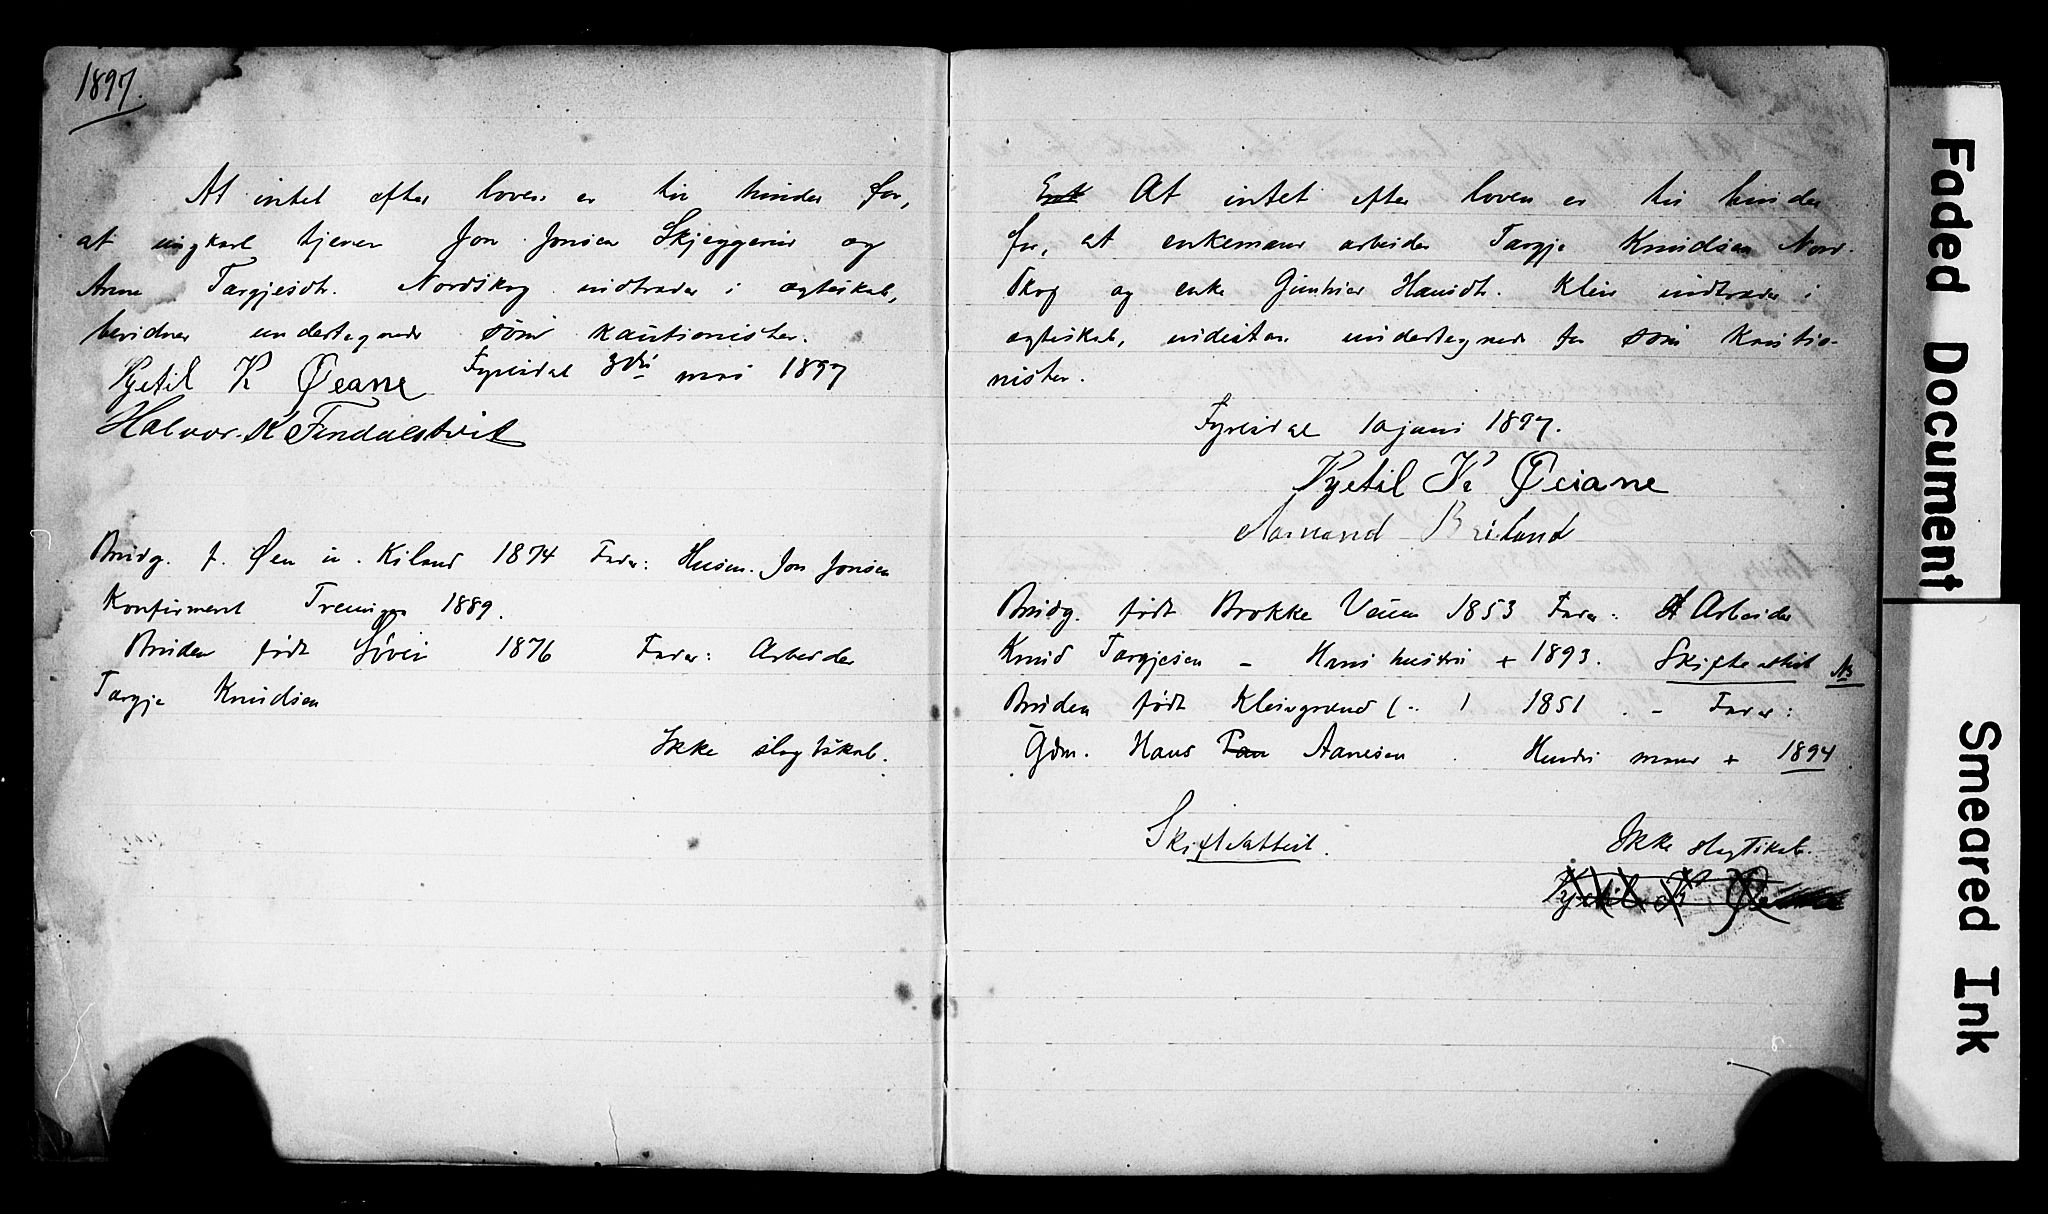 1897.
At intet efter loven er til hinder for,
at ungkarl tjener Jon Jonsen Skjeggerud og
Anne Targjesdtr. Nordskog indtræder i ægteskab,
bevidner undertegnede som kautionister.
Fyresdal 3die mai 1897
Kjetil K Øeiane
Halvor K Findalstveit
Brudg. f. Øen u. Kiland 1874 Fader: Husm. Jon Jonsen
Konfirmeret Treungen 1889.
Bruden født 1876 Fader: Arbeider
Targje Knudsen
Ikke slægtskab.
At intet efter loven er til hinder
for, at enkemand arbeider Targje Knudsen Nord-
skog og enke Gunhild Hansdtr. Klein indtræder i
ægteskab, undertegnede som kautio-
nister.
Fyresdal 10 juni 1897.
Kjetil K. Øeiane
Aamund Breiland
Brudg. født Brokke 1853 Fader: Arbeider
Knud Targjesen – Hans hustru + 1893. Skifteattest
Bruden født 1851. – Fader:
Gdm. Hans Aanesen. Hendes mand + 1894
Skifteattest.
Ikke slægtskab.
Faded Document
Smeared Ink